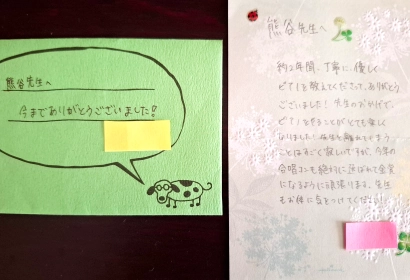 熊谷先生へ
今までありがとうございました!
熊谷先生へ
約2年間、丁寧に、優しく
ピアノを教えてくださって、ありがとう
ございました! 先生のおかげで、
ピアノをやることがとても楽しく
なりました! 先生と離れてしまう
ことはすごく寂しいですが、今年の
合唱コンも絶対に選ばれて金賞
になるように頑張ります。先生
もお体に気をつけてください!